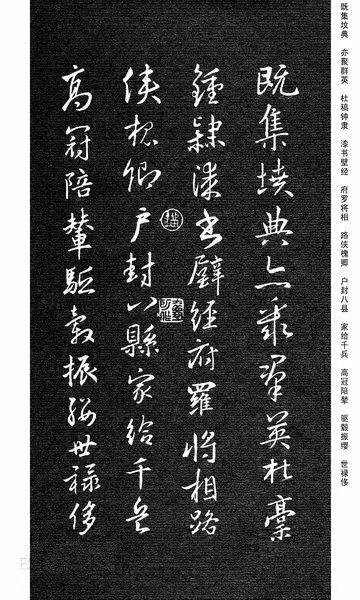 既集坟典 亦聚群英 杜稿钟隶 漆书壁经 府罗将相 路侠槐卿 户封八县 家给千兵 高冠陪辇 驱毂振缨 世禄侈
既集墳典亦聚群英杜稾
鍾隸漆書壁經府羅將相路
俠槐卿户封八縣家給千兵
高冠陪輦驅轂振纓世祿侈